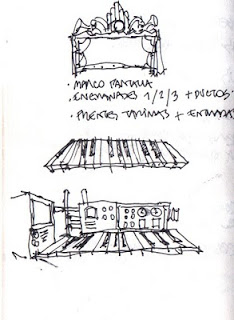 · MARCO PANTALLA
· ENGRANAJES 1/2/3 + DUCTOS.
· PUENTES TARIMAS + ENTRADAS